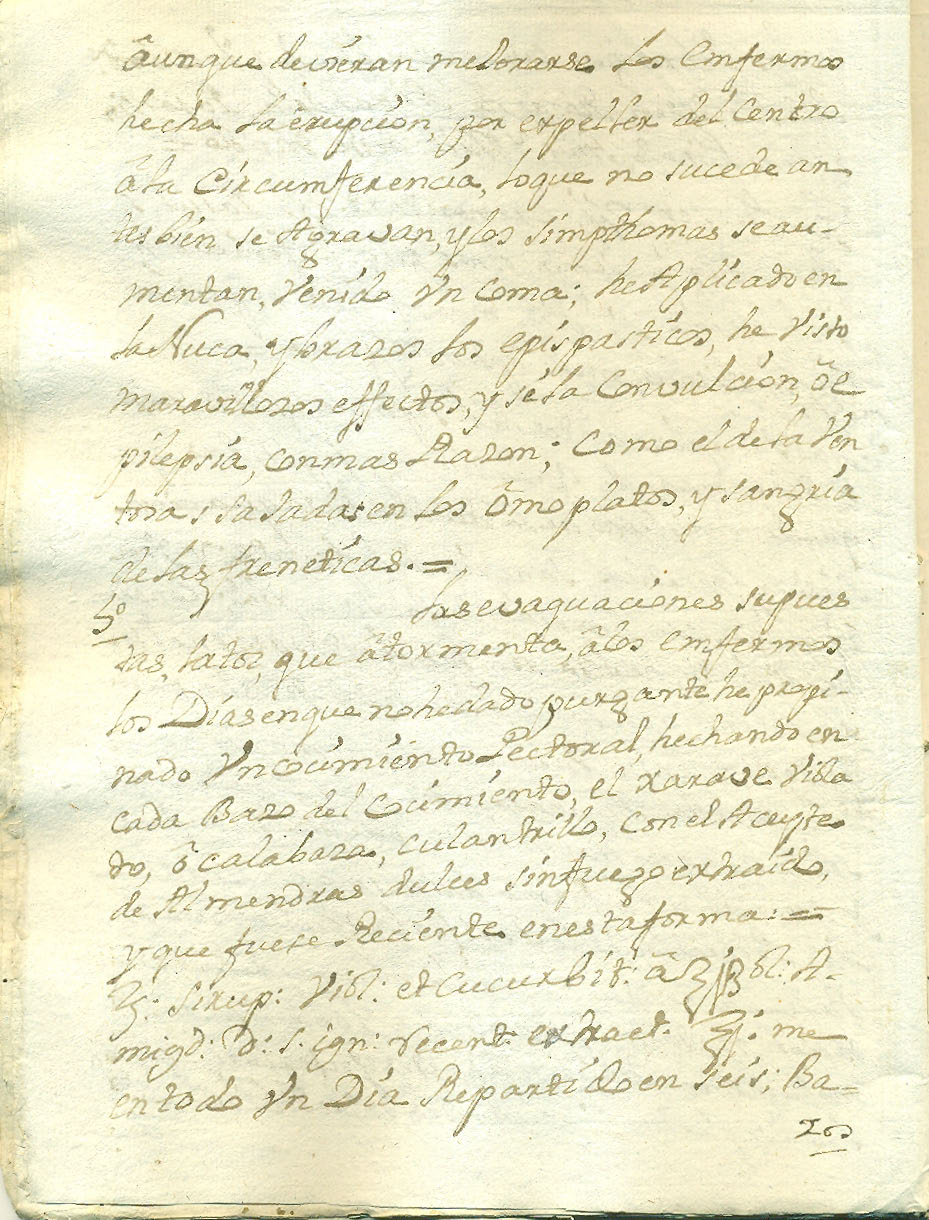 âunque devieran mejorarse los enfermos
hecha la erupcion, por expeller del Centro
â la Circumferencia, loque no sucede an
tes bien se Agravan, y los simpthomas seau-
mentan, Venido Vn Coma; he Aplicado en
la Nuca, y brazos los epispasticos, he Visto
maravillozos effectos, y sela Convulcion, ô e
pilepsia, con mas Razon; Como el de la Ven
tosas sajadas en los ômoplatos, y sangria
de las freneticas. =
5º las evaquaciones supues
tas, la toz que âtormenta, âlos enfermos
los Dias enque nohedado purgante he propi-
nado Vn Cocimiento Pectoral, hechando en
cada Bazo del Cocimiento, el xarave Viola
do, ô Calabaza, culantrillo, con el Aceyte
de Almendras dulces sinfuego extraido,
y que fuese Reciente enesta forma: =
℞: Sirup: Viol: et Cucurbit: â ℥jß ol: A-
migd: D: s. ign: recent: extract. ℥j: me
en todo Vn Dia Repartido en seis; Ba-
zos